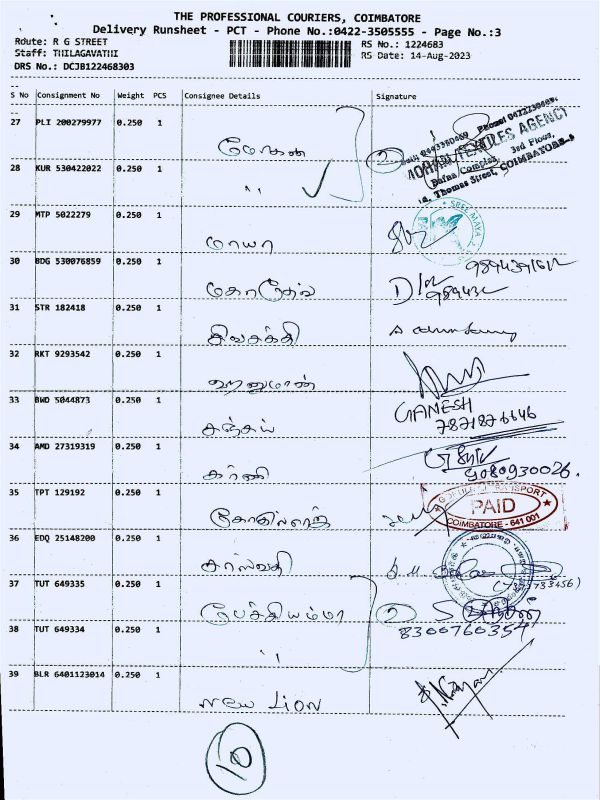 THE PROFESSIONAL COURIERS, COIMBATORE
Delivery Runsheet - PCT - Phone No.:0422-3505555 - Page No.:3
Rdute: R G STREET
RS No.: 1224683
Staff: THILAGAVATHI
RS Date: 14-Aug-2023
DRS No.: DCJB122468303
S No Consignment No Weight PCS Consignee Details Signature
27 PLI 200279977 0.250 1
மோகன்
AGENCY
3rd Floor,
14, Thomas Street, COIMBATORE-1
28 KUR 530422022 0.250 1
"
29 MTP 5022279 0.250 1
மாயா
SREE MAYA
30 BDG 530076859 0.250 1
31 STR 182418 0.250 1
சிவசக்தி
32 RKT 9293542 0.250 1
ஹனுமான்
33 BWD 5044873 0.250 1
சஞ்சய்
GANESH
7871876646
34 AMD 27319319 0.250 1
கர்ணி
9080930026.
35 TPT 129192 0.250 1
TRANSPORT
PAID
COIMBATORE - 641 001
36 EDQ 25148200 0.250 1
சரஸ்வதி
37 TUT 649335 0.250 1
பேச்சியம்மா
2
8300760357
38 TUT 649334 0.250 1
"
39 BLR 6401123014 0.250 1
New Lion
10